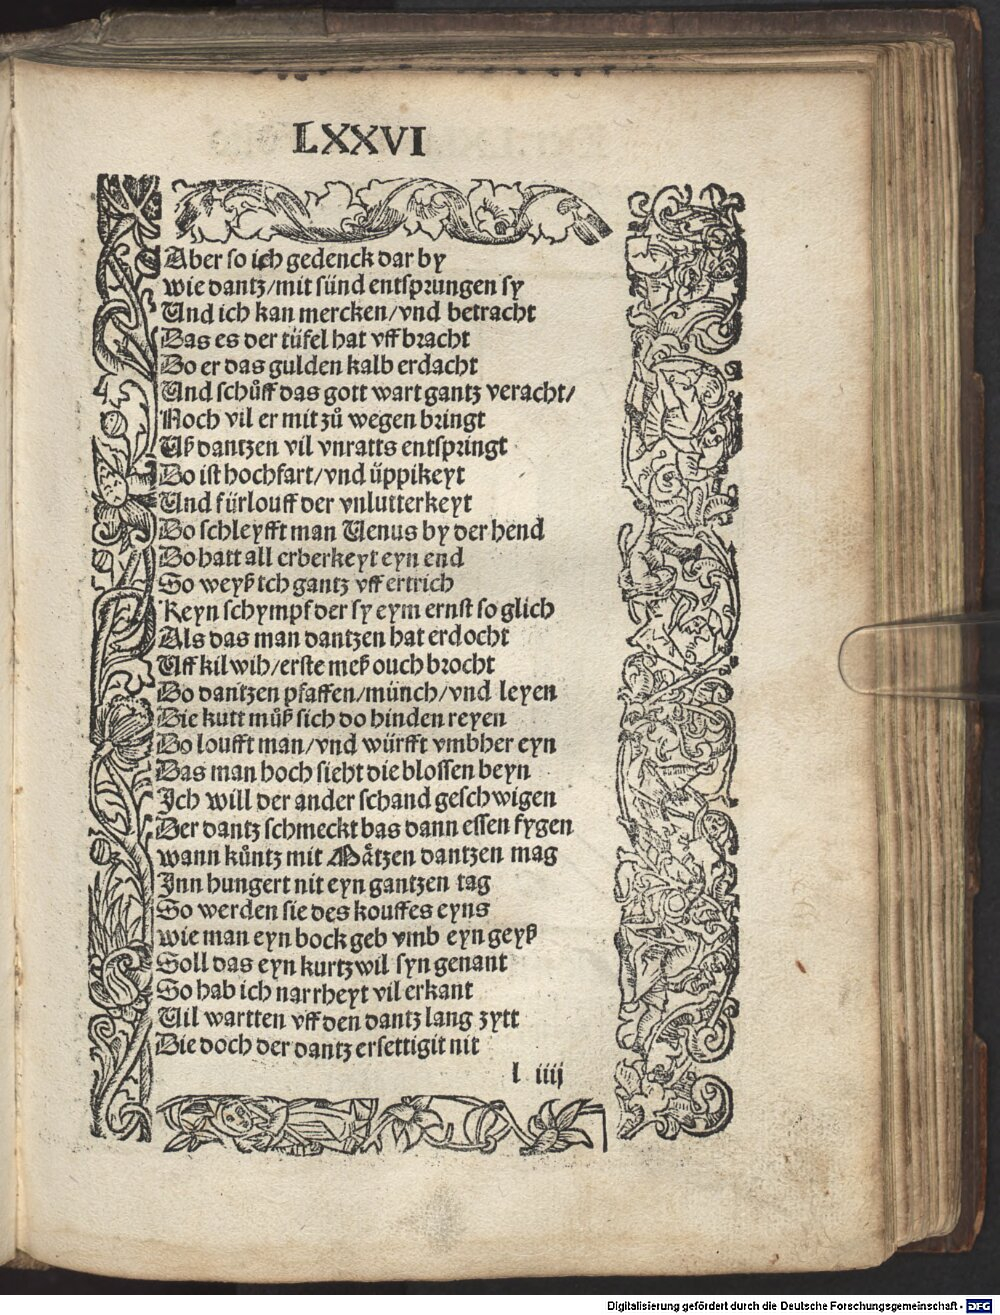 LXXVI
Aber so ich gedenck dar by
wie dantz/mit sünd entsprungen sy
Und ich kan mercken/vnd betracht
Das es der tüfel hat vff bracht
Do er das gulden kalb erdacht
Und schůff das gott wart gantz veracht/
Noch vil er mit zů wegen bringt
Uß dantzen vil vnratts entspringt
Do ist hochfart/vnd üppikeyt
Und fürlouff der vnlutterkeyt
Do schleyfft man Uenus by der hend
Do hatt all erberkeyt eyn end
So weyß ich gantz vff ertrich
Keyn schympf der sy eym ernst so glich
Als das man dantzen hat erdocht
Uff kilwih/erste meß ouch brocht
Do dantzen pfaffen/münch/vnd leyen
Die kutt můß sich do hinden reyen
Do loufft man/vnd würfft vmbher eyn
Das man hoch sieht die blossen beyn
Ich will der ander schand geschwigen
Der dantz schmeckt bas dann essen fygen
wann kůntz mit Mätzen dantzen mag
Inn hungert nit eyn gantzen tag
So werden sie des kouffes eyns
wie man eyn bock geb vmb eyn geyß
Soll das eyn kurtzwil syn genant
So hab ich narrheyt vil erkant
Uil wartten vff den dantz lang zytt
Die doch der dantz ersettigit nit
l iiij
Digitalisierung gefördert durch die Deutsche Forschungsgemeinschaft - DFG